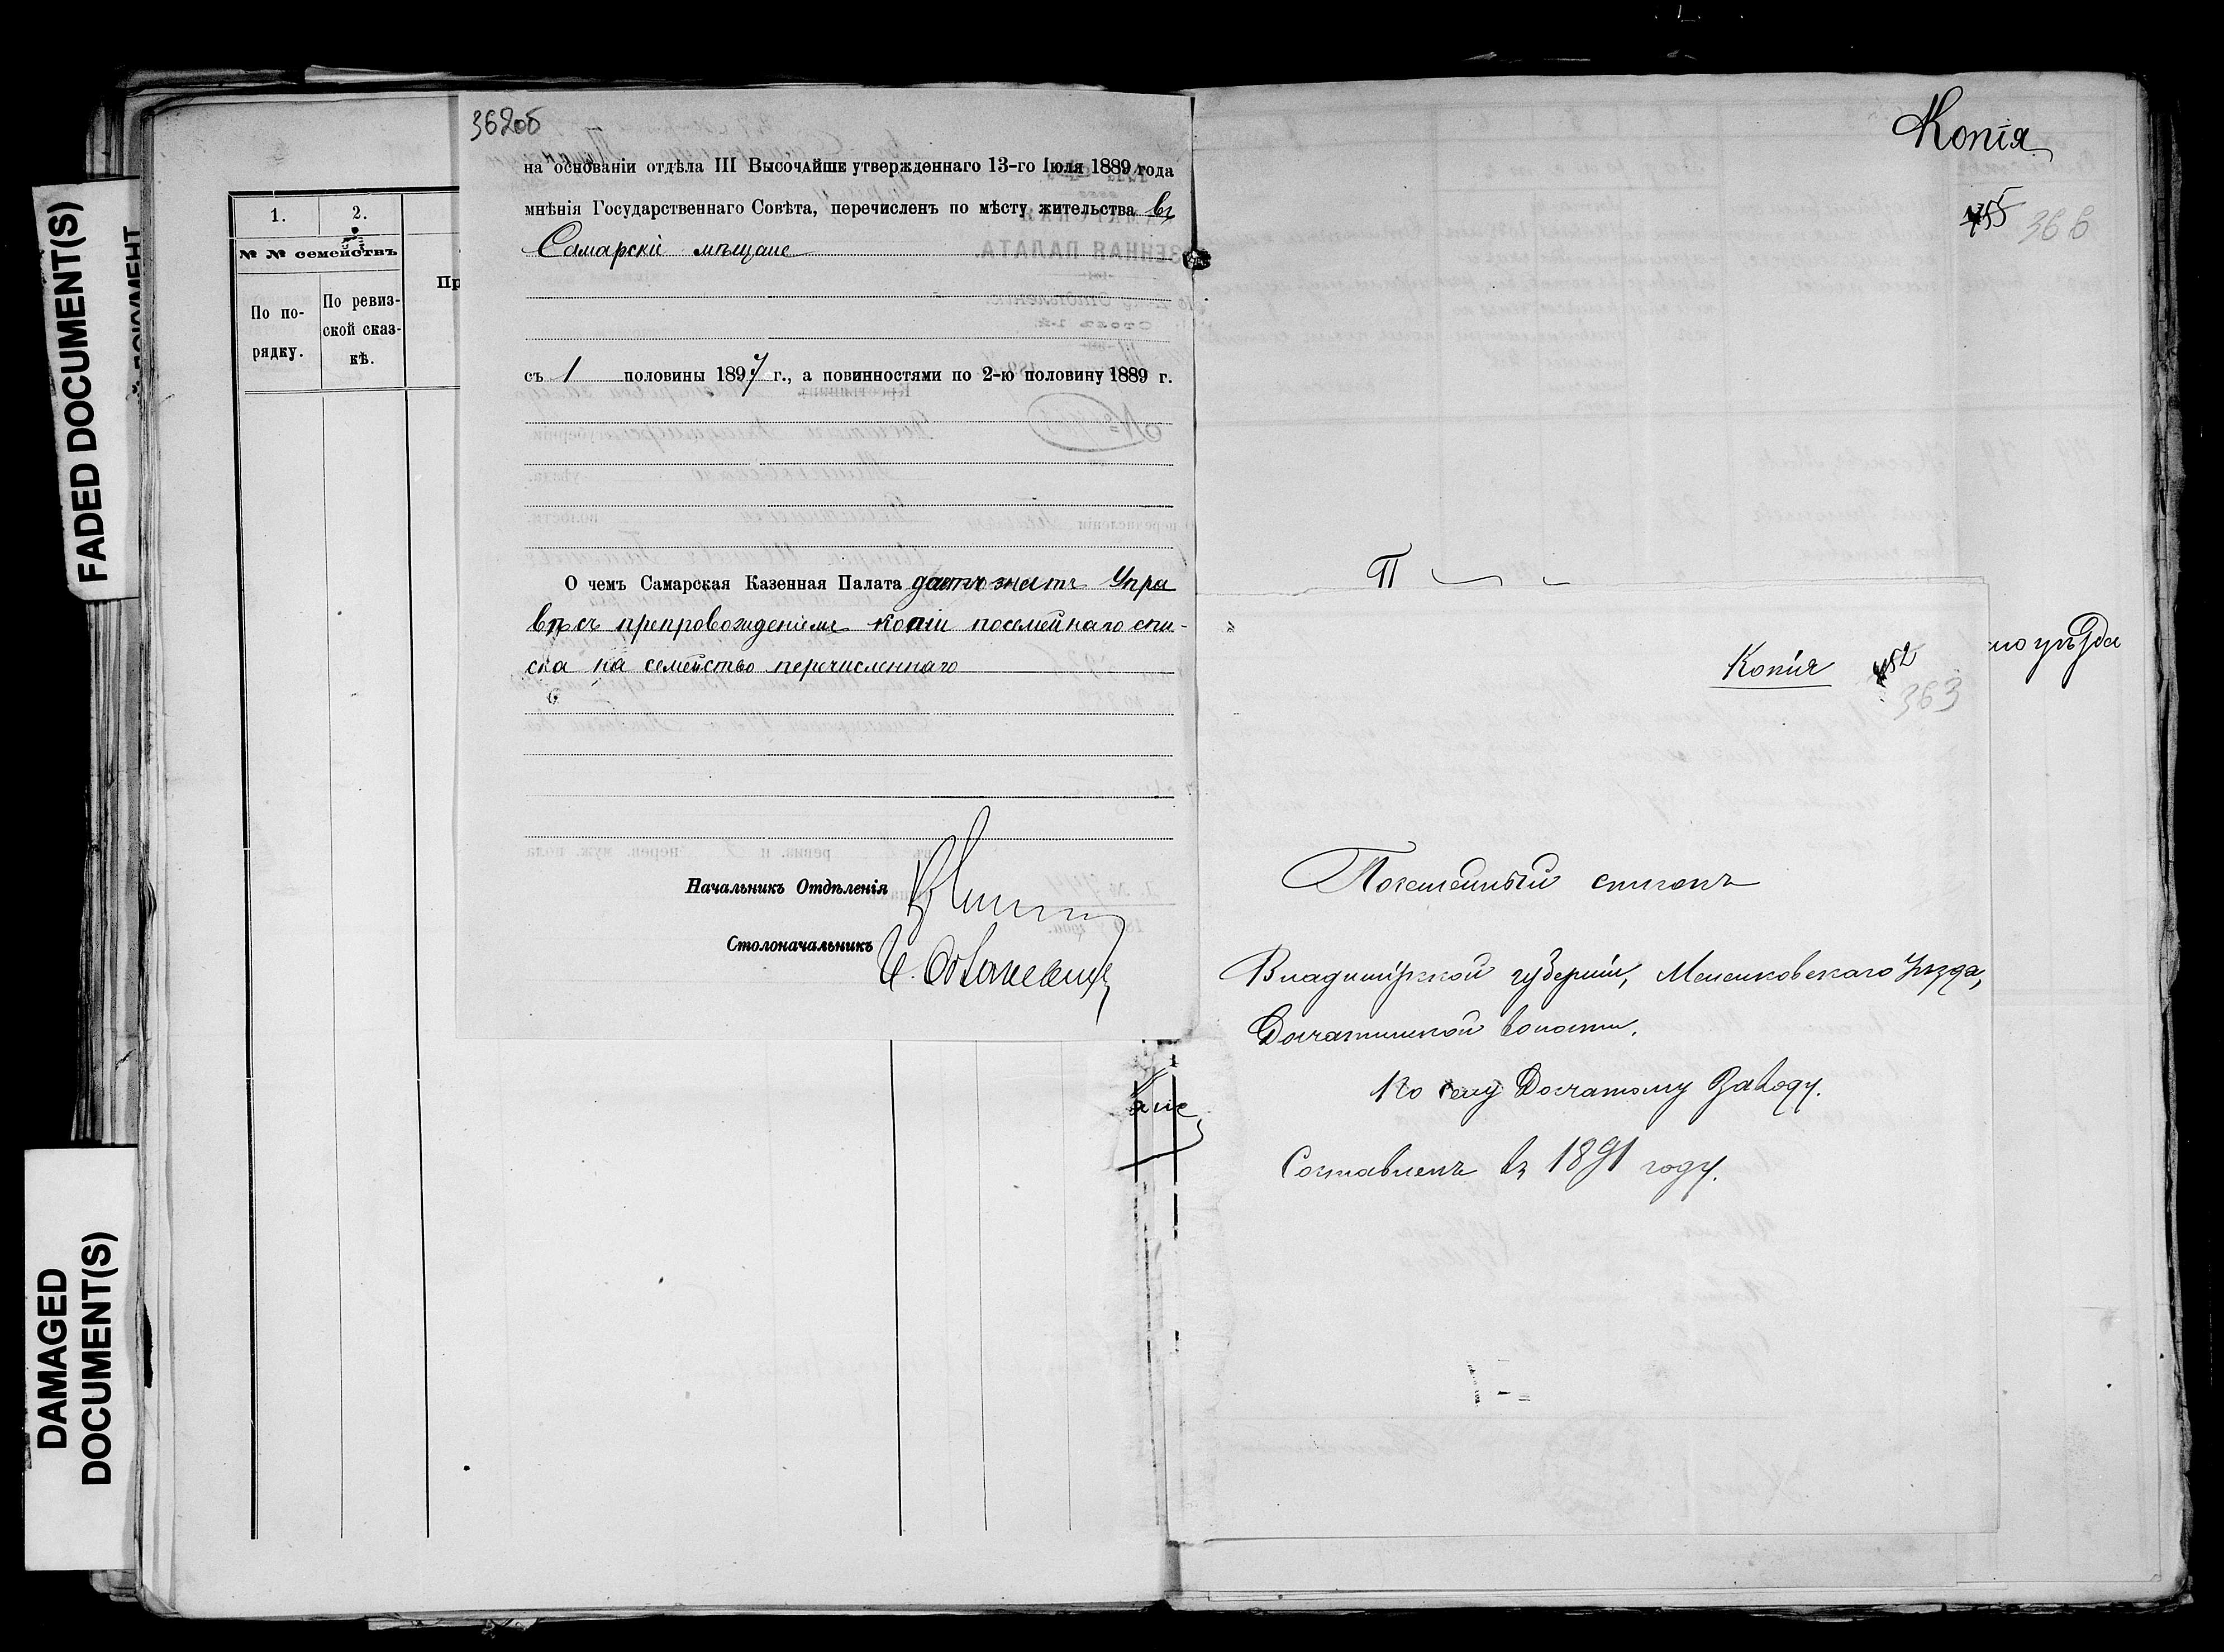 FADED DOCUMENT(S)
DAMAGED
DOCUMENT(S)
1.
2.
№ № семействъ
По по-
рядку.
По ревиз-
ской сказ-
кѣ.
Пр
362об
на основаніи отдѣла III Высочайше утвержденнаго 13-го Іюля 1889 года
мнѣнія Государственнаго Совѣта, перечисленъ по мѣсту жительства въ
Самарскіе мѣщане
съ 1 половины 1897 г., а повинностями по 2-ю половину 1889 г.
О чемъ Самарская Казенная Палата даетъ знать Упра
вѣ съ препровожденіемъ копіи посемейнаго спи-
ска на семейство перечисленнаго
Начальникъ Отдѣленія
Столоначальникъ
Копія
455
366
П
Копія
452
363
уѣзда
Посемейный списокъ
Владимірской губерніи, Меленковскаго Уѣзда,
Досчатинской волости.
По селу Досчатому Заводу.
Составленъ въ 1891 году.